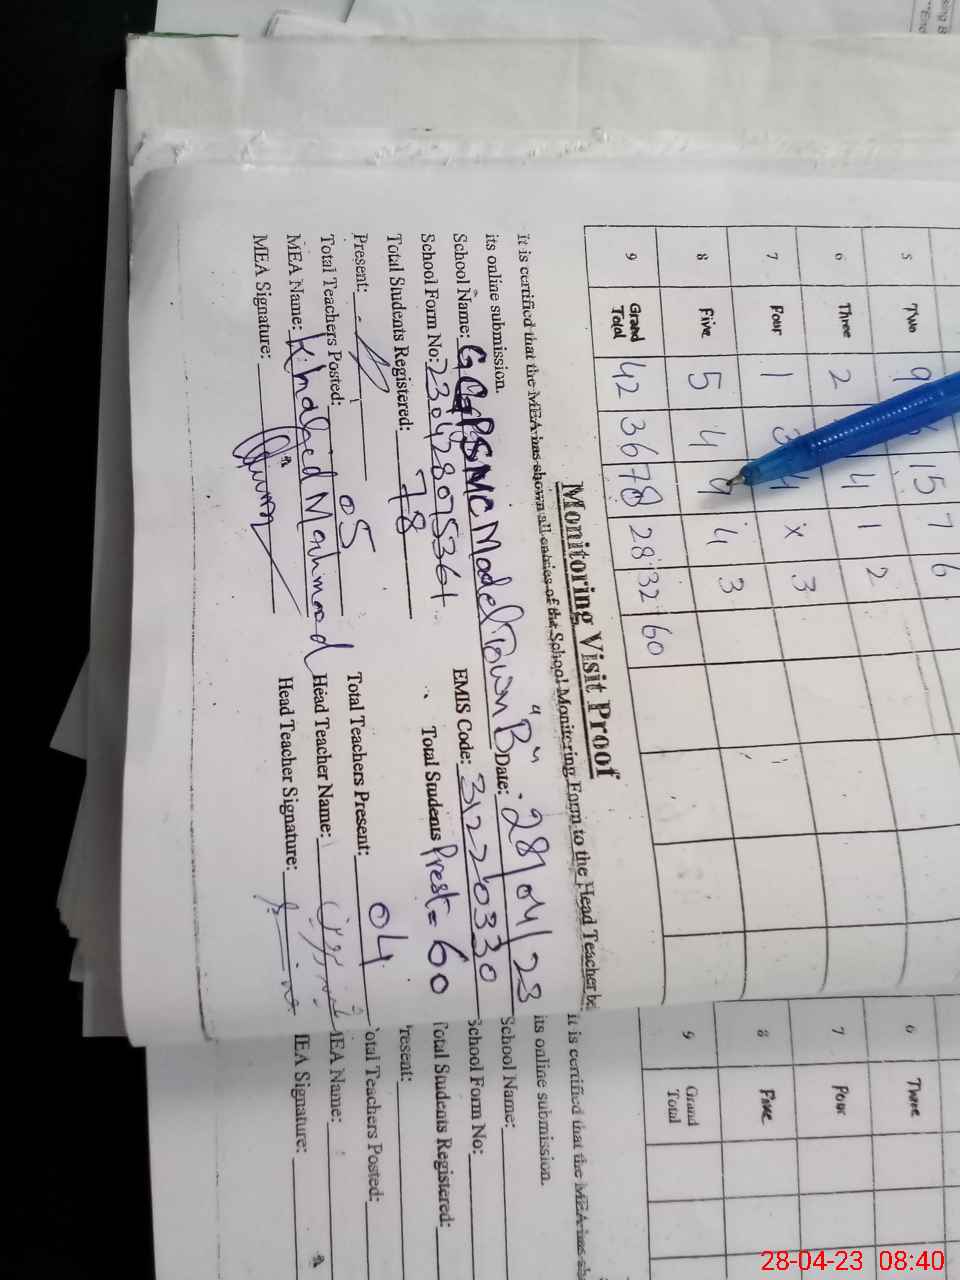 5 Two 9 15 7 6
6 Three 2 4 1 2
7 Four 1 3 4 x 3
8 Five 5 4 9 4 3
9 Grand Total 42 36 78 28 32 60
Monitoring Visit Proof
It is certified that the MEA has shown all entries of the School Monitoring Form to the Head Teacher be
its online submission.
School Name: GGPSMC Model Town "B" Date: 28/04/23
School Form No: 230428075361 EMIS Code: 31220330
Total Students Registered: 78 Total Students Prest = 60
Present:
Total Teachers Posted: 05 Total Teachers Present: 04
MEA Name: Khalied Mahmood Head Teacher Name:
MEA Signature: Head Teacher Signature:
6 Three
7 Four
8 Five
9 Grand Total
It is certified that the MEA has
its online submission.
School Name:
School Form No:
Total Students Registered:
resent:
otal Teachers Posted:
MEA Name:
MEA Signature:
28-04-23 08:40